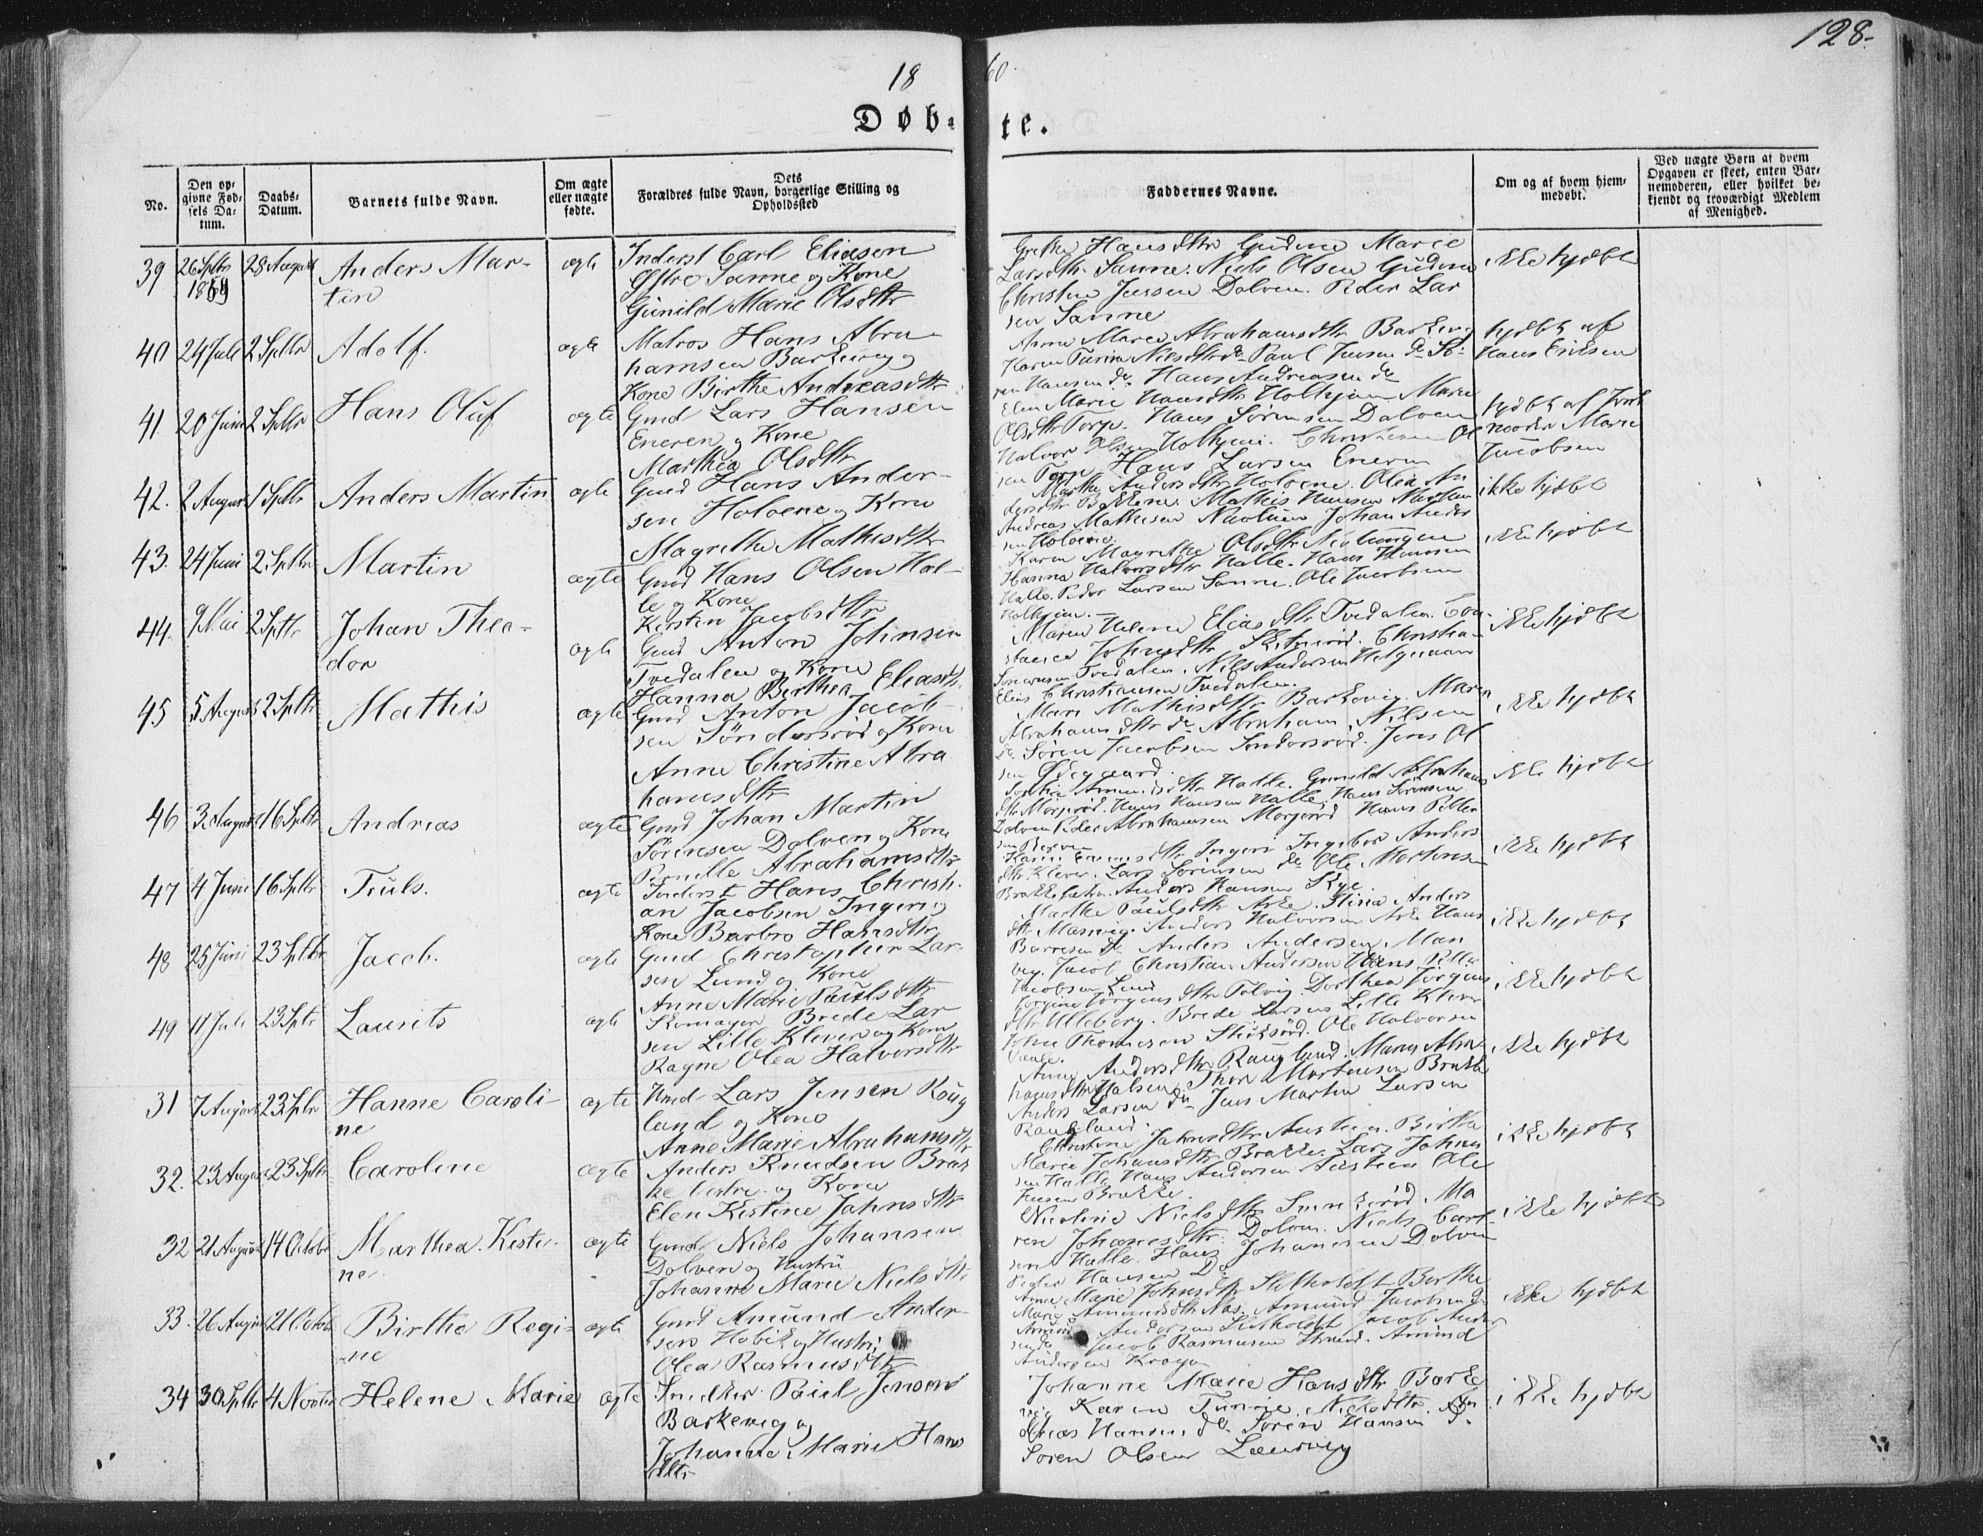 128.
18 60.
Døb= te.
No.
Den op=
givne Fød=
sels Da=
tum.
Daabs=
Datum.
Barnets fulde Navn.
Om ægte
eller uægte
fødte.
Dets
Forældres fulde Navn, borgerlige Stilling og
Opholdssted
Faddernes Navne.
Om og af hvem hjem=
medøbt.
Ved uægte Børn af hvem
Opgaven er skeet, enten Bar=
nemoderen, eller hvilket be=
kjendt og troværdigt Medlem
af Menighed.
39 26 Sptbr 1859 28 August Anders Mar-
tin
ægte
Inderst Carl Eliasen
Østre Sanne og Kone
Gunild Marie Olsdttr
Grethe Hansdttr Gudine Marie
Larsdttr Sanne. Niels Olsen
Christen Jensen Dolven. Peder Lar
sen Sanne
ikke hjdbt
40 24 Juli 2 Sptbr Adolf.
ægte
Matros Hans Abra-
hamsen Barkevig og
Kone Birthe Andreasdttr
Anne Marie Abrahamsdttr Barkevig
Paul Jensen do Sø-
ren Hansen do. Hans Andreasen do
hjdbt af
Hans Eriksen
41. 20 Juni 2 Sptbr Hans Oluf
ægte
Gmd Lars Hansen
Eneren og Kone
Marthea Olsdttr
Elen Marie Hansdttr Holtejen Marie
Olsdttr Torp. Hans Sørensen Dolven
Halvor Olsen Holtejen. Christian Ol
sen Torp Hans Larsen Eneren
hjdbt af Jord
moder Marie
Jacobsen
42. 2 August 1 Sptbr Anders Martin
ægte
Gmd Hans Ander-
sen Holvene og Kone
Magrethe Mathisdttr
Marthe Andersdttr Holvene. Olea An
dersdttr Bakkene. Mathis Hansen
Andreas Mathisen Johan Anders
sen Holvene
ikke hjdbt
43. 24 Juni 2 Sptbr Martin
ægte
Gmd Hans Olsen Hal-
le og Kone
Kirsten Jacobsdttr
Karen Magrethe Olsdttr
Hanna Halvorsdttr Halle. Hans Hansen
Halle. Peder Larsen Sanne. Ole Jacobsen
Holtejen.
ikke hjdbt
44. 9 Mai 2 Sptbr Johan Theo-
dor
ægte
Gmd Anton Johnsen
Tvedalen og Kone
Hanna Berthea Eliasdt.
Maren Helene Eliasdttr Tvedalen. Con-
stance Johnsdttr Christian
Tvedalen. Nils Andersen
Elias Christiansen Tvedalen.
ikke hjdbt
45 5 August 2 Sptbr Mathis
ægte
Gmd Anton Jacob-
sen Søndersrød og Kone
Anne Christine Abra
hamsdttr
Mari Mathisdttr Barkevig. Maren
Abrahamsdttr do Abraham Nilsen
do Søren Jacobsen Søndersrød. Jens Ol
sen Ødegaard.
ikke hjdbt
46 3 August 16 Sptbr Andreas
ægte
Gmd Johan Martin
Sørensen Dolven og Kone
Pernille Abrahamsdttr
Halle. Gunild Abrahams
dttr Mørjerød. Hans Hansen Halle, Hans Sørensen
Dolven Peder Abrahamsen Mørjerød Hans Petter
ikke hjdbt
47 4 Juni 16 Sptbr Truls.
ægte
Inderst Hans Christi-
an Jacobsen Ingeri og
Kone Barbro Hansdttr
Ingeri Ingebor Anders
dttr Klever. Lars Sørensen do Ole Mortensen
Anders Hansen Rye
ikke hjdbt
48 25 Juni 23 Sptbr Jacob.
ægte
Gmd Christopher Lar-
sen Lund og Kone
Anne Marie Paulsdttr
Marthe Paulsdttr Ask. Stina Anders
dttr Manvig. Anders Halvorsen Ask Hans
Anders Andersen Man
vig. Jacob Christian Andersen Hans Petter
Jacobsen Lund
ikke hjdbt
49 11 Juli 23 Sptr Laurits
ægte
Skomager Brede Lar
sen Lille Klever og Kone
Ragne Olea Halvorsdttr
Jørgine Jørgensdttr Dorthea Jørgens
dttr Ulleberg. Brede Larsen Lille Klever
John Thomesen Ole Halvorsen
ikke hjdbt
31 7 August 23 Sptbr Hanne Caroli-
ne
ægte
Hmd Lars Jensen Roug
land og Kone
Anne Marie Abrahamsdttr
Anne Andersdttr Raugland. Maren Abra-
hamsdttr Halsen. Thor Mortensen Brathe
Anders Larsen do Jens Martin Larsen
Raugland.
ikke hjdbt
32. 23 August 23 Sptbr Caroline
ægte
Anders Knudsen Brak
ke Vestre og Kone
Elen Kistine Jahnsdttr
Christine Jahnsdttr Austeen. Birthe
Marie Johansdttr Brakke. Lars Johan
sen Halle Hans Andersen Austeen Ole
Brakke.
ikke hjdbt
32 21 August 14 Octobr Marthea Kisti-
ne
ægte
Gmd Niels Johansen
Dolven og Hustru
Johanne Marie Nielsdttr
Nicoline Nielsdttr Ma
ren Johanesdttr. Dolven. Niels Carl-
sen Halle. Hans Johannesen Dolven
Peder Hansen Do
ikke hjdbt
33. 26 August 21 Octob Birthe Regi-
ne
ægte
Gmd Amund Ander-
sen og Hustru
Olea Rasmusdttr
Anne Marie Johnsdttr Birthe
Marie Amundsdttr Nas. Amund Jacobsen do
Amund Andersen Jacob Ander
sen do Jacob Rasmusen Amund
Andersen
ikke hjdbt
34 30 Sptbr 4 Novbr Helene Marie
ægte
Snedker Paul Jensen
Barkevig og
Johanne Marie Hans
dttr
Johanne Marie Hansdttr Barke
vig Karen Nielsdttr. An
dreas Hansen do Søren Hansen do.
Søren Olsen Laurvig
ikke hjdbt